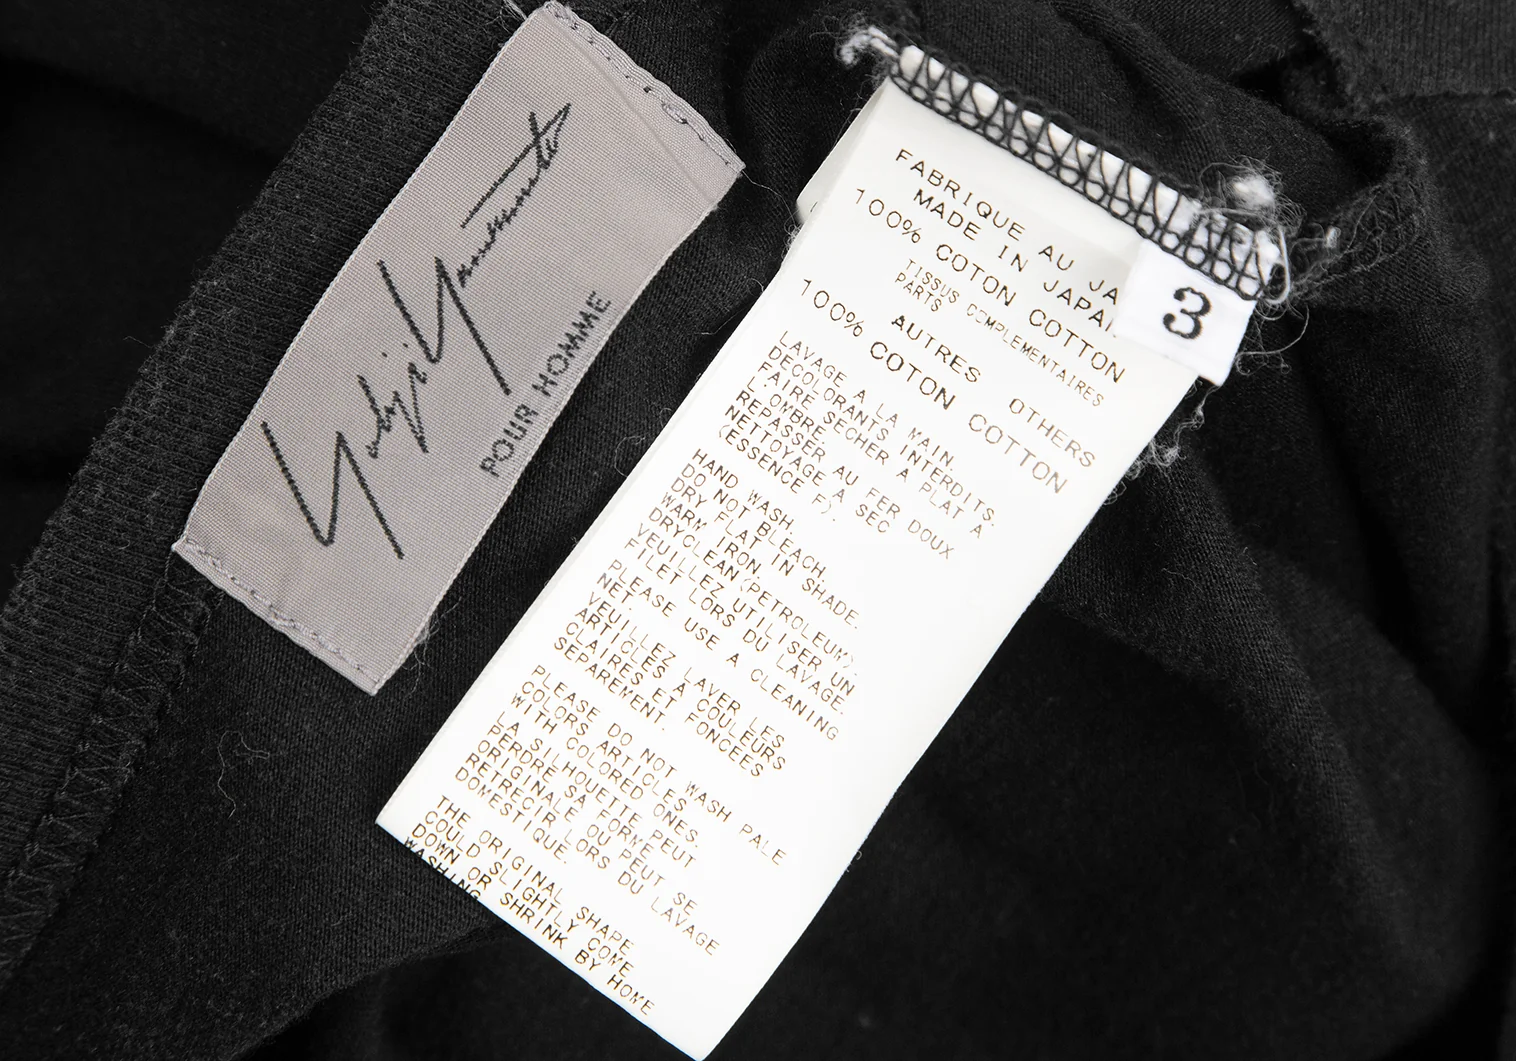 Yohji Yamamoto
POUR HOMME
3
FABRIQUE AU JA
MADE IN JAPA
100% COTON COTTON
TISSUS COMPLEMENTAIRES
PARTS
AUTRES OTHERS
100% COTON COTTON
LAVAGE A LA MAIN.
DECOLORANTS INTERDITS.
FAIRE SECHER A PLAT A
L'OMBRE.
REPASSER AU FER DOUX
NETTOYAGE A SEC
(ESSENCE F).
HAND WASH.
DO NOT BLEACH.
DRY FLAT IN SHADE.
WARM IRON.
DRYCLEAN(PETROLEUM).
VEUILLEZ UTILISER UN
FILET LORS DU LAVAGE.
PLEASE USE A CLEANING
NET.
VEUILLEZ LAVER LES
ARTICLES A COULEURS
CLAIRES ET FONCEES
SEPAREMENT.
PLEASE DO NOT WASH PALE
COLORS ARTICLES
WITH COLORED ONES.
LA SILHOUETTE PEUT
PERDRE SA FORME
ORIGINALE OU PEUT SE
RETRECIR LORS DU LAVAGE
DOMESTIQUE.
THE ORIGINAL SHAPE
COULD SLIGHTLY COME
DOWN OR SHRINK BY HOME
WASHING.